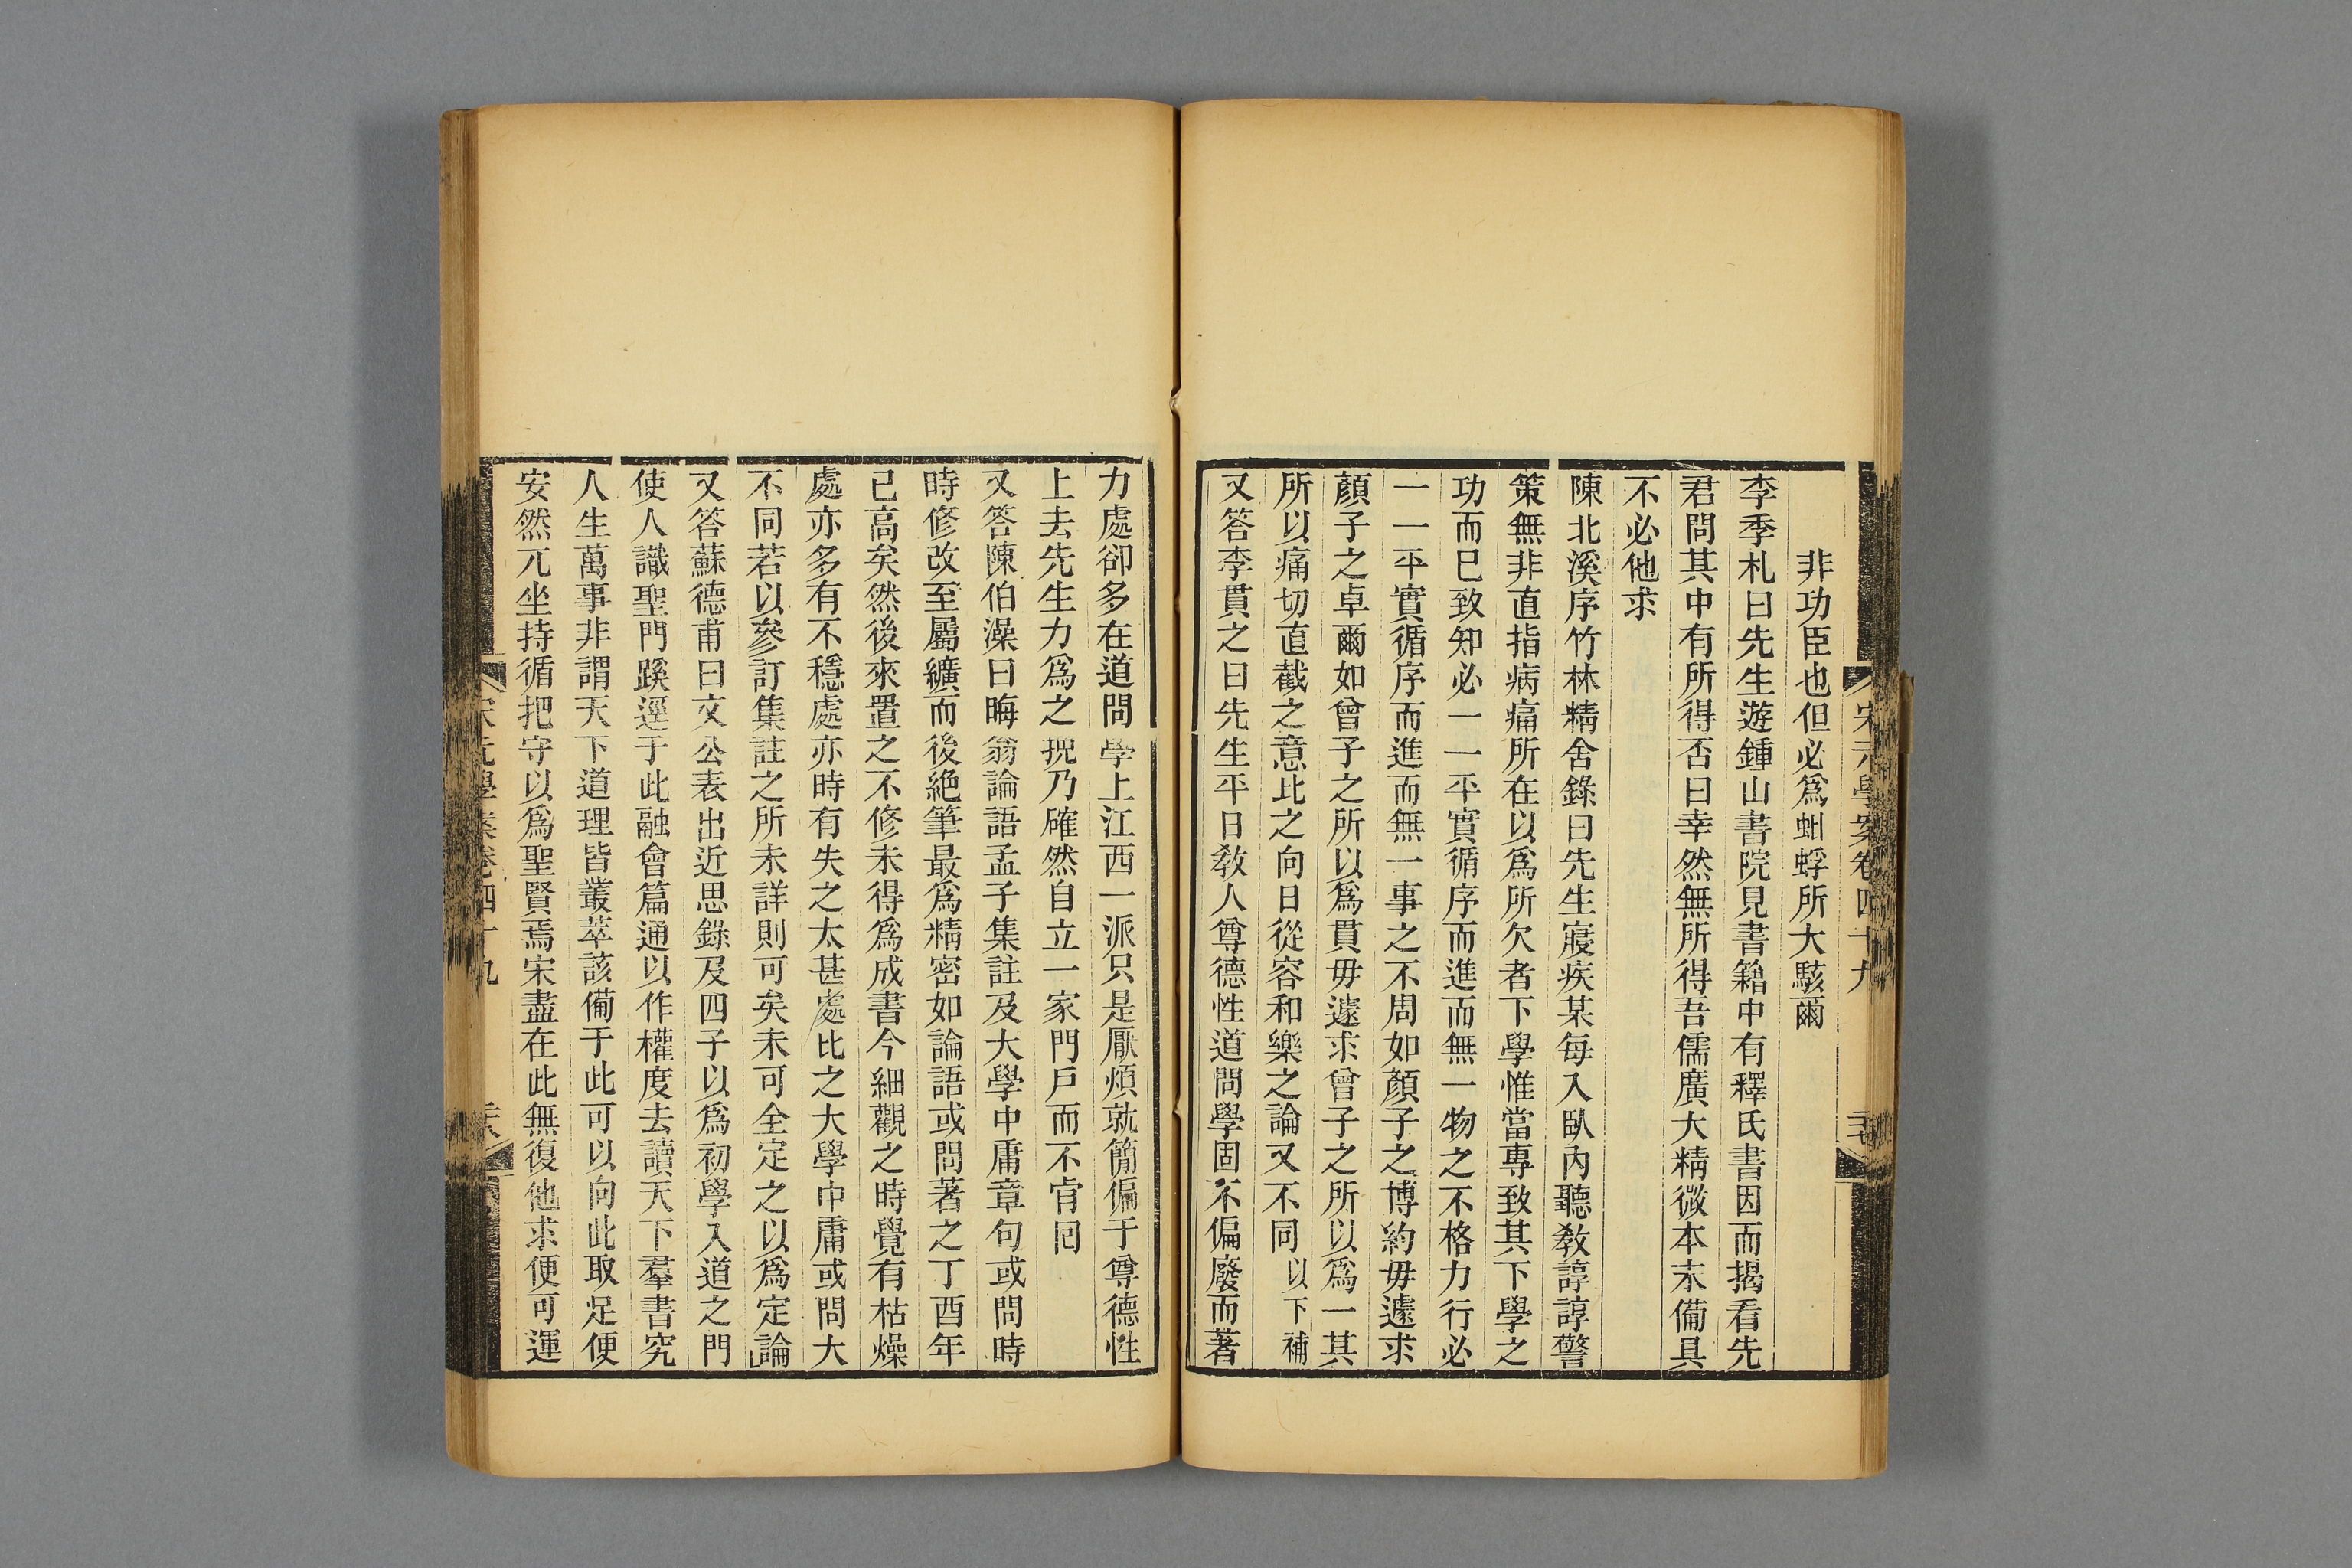 宋元學案卷四十九
非功臣也但必爲蚍蜉所大駭爾
李季札曰先生遊鍾山書院見書籍中有釋氏書因而揭看先
君問其中有所得否曰幸然無所得吾儒廣大精微本末備具
不必他求
陳北溪序竹林精舍錄曰先生寢疾某每入臥內聽敎諄諄警
策無非直指病痛所在以爲所欠者下學惟當專致其下學之
功而已致知必一一平實循序而進而無一物之不格力行必
一一平實循序而進而無一事之不周如顏子之博約毋遽求
顏子之卓爾如曾子之所以爲貫毋遽求曾子之所以爲一其
所以痛切直截之意比之向日從容和樂之論又不同以下補
又答李貫之曰先生平日敎人尊德性道問學固不偏廢而著
力處卻多在道問學上江西一派只是厭煩就簡偏于尊德性
上去先生力爲之挽乃確然自立一家門戶而不肯囘
又答陳伯澡曰晦翁論語孟子集註及大學中庸章句或問時
時修改至屬纊而後絕筆最爲精密如論語或問著之丁酉年
已高矣然後來置之不修未得爲成書今細觀之時覺有枯燥
處亦多有不穩處亦時有失之太甚處比之大學中庸或問大
不同若以參訂集註之所未詳則可矣未可全定之以爲定論
又答蘇德甫曰文公表出近思錄及四子以爲初學入道之門
使人識聖門蹊逕于此融會篇通以作權度去讀天下羣書究
人生萬事非謂天下道理皆叢萃該備于此可以向此取足便
安然兀坐持循把守以爲聖賢焉宋盡在此無復他求便可運
宋元學案卷四十九